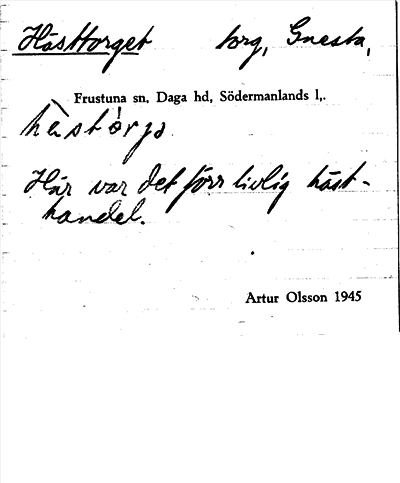 Hästtorget torg, Gnesta,
Frustuna sn, Daga hd, Södermanlands l,.
hèstórjə
Här var det förr livlig häst-
handel.
Artur Olsson 1945